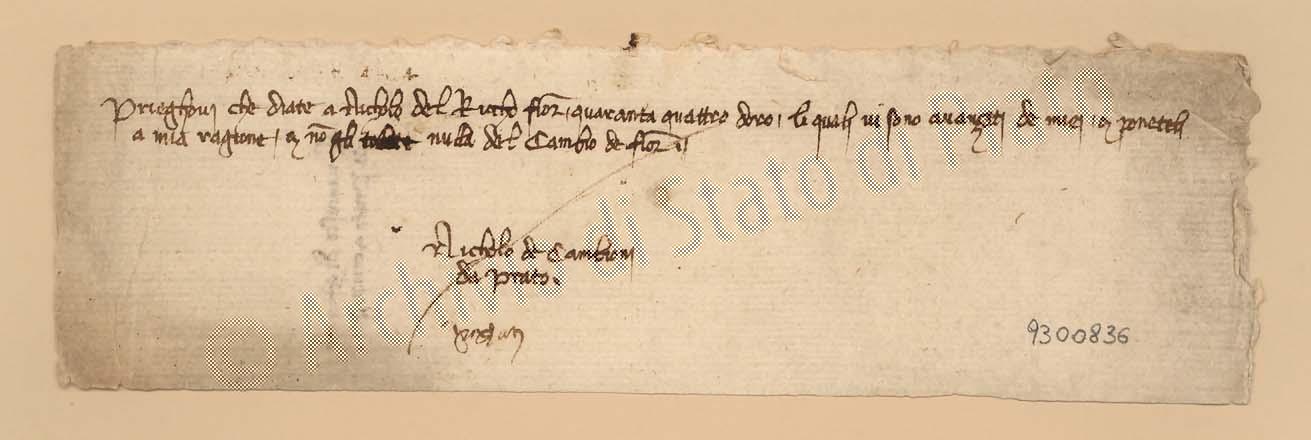 Prieghovi che diate a Nicholo del Riccho fior. quaranta quattro doro, li quali vi sono avanzati de miei, e poneteli
a mia ragione, e no gli tollete nulla del Cambio de fior.
Nicholo de Cambioni
da Prato.
9300836
© Archivio di Stato di Prato